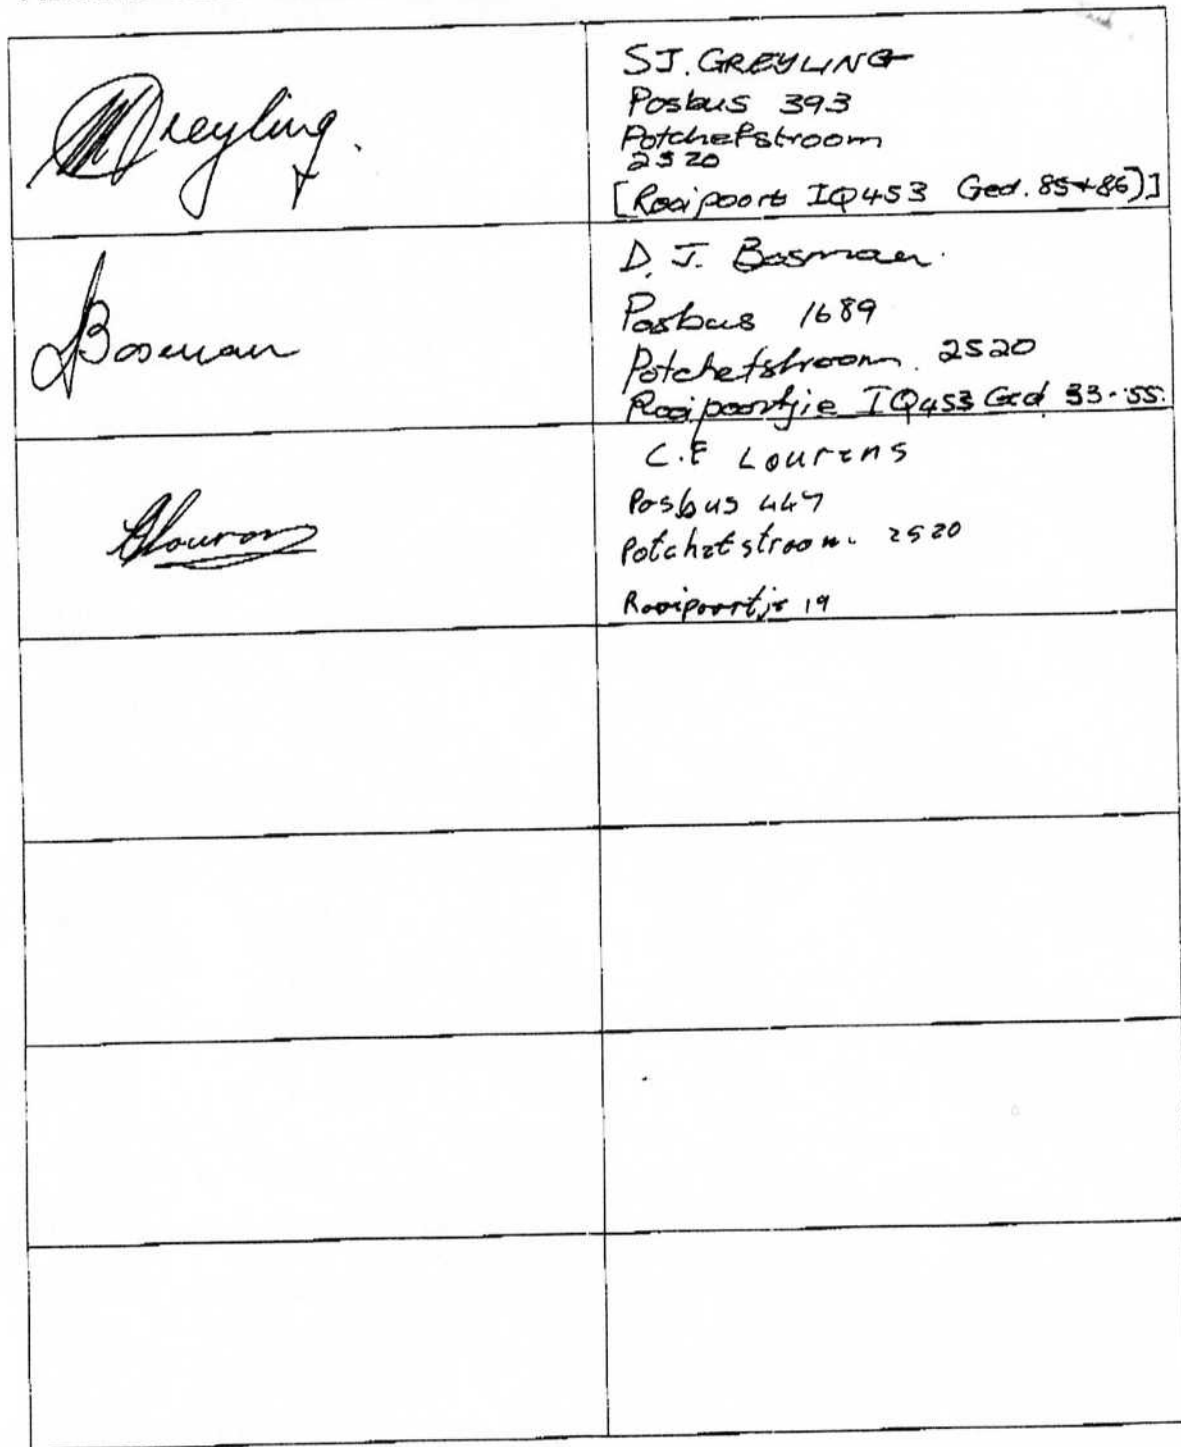 Greyling.
SJ. GREYLING
Posbus 393
Potchefstroom
2520
[Rooipoort IQ453 Ged. 85+86)]
Bosman
D. J. Bosman.
Posbus 1689
Potchefstroom. 2520
Rooipoortjie IQ453 Ged 33-55.
Lourens
C.F Lourens
Posbus 447
Potchefstroom. 2520
Rooipoortjie 19